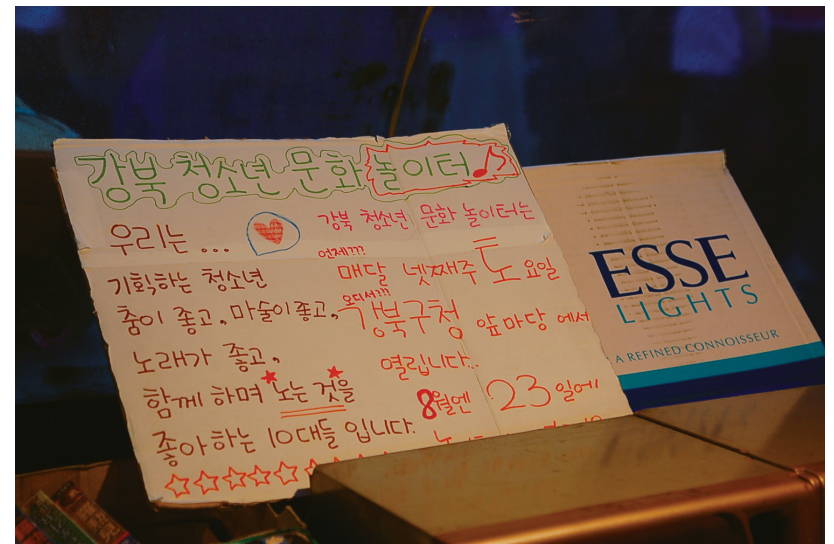 강북 청소년 문화 놀이터
우리는 ...
기획하는 청소년
춤이 좋고, 마술이 좋고,
노래가 좋고,
함께 하며 노는 것을
좋아하는 10대들 입니다.
강북 청소년 문화 놀이터는
언제???
매달 넷째주 토요일
어디서???
강북구청 앞마당 에서
열립니다..
8월엔 23일에
ESSE
LIGHTS
A REFINED CONNOISSEUR